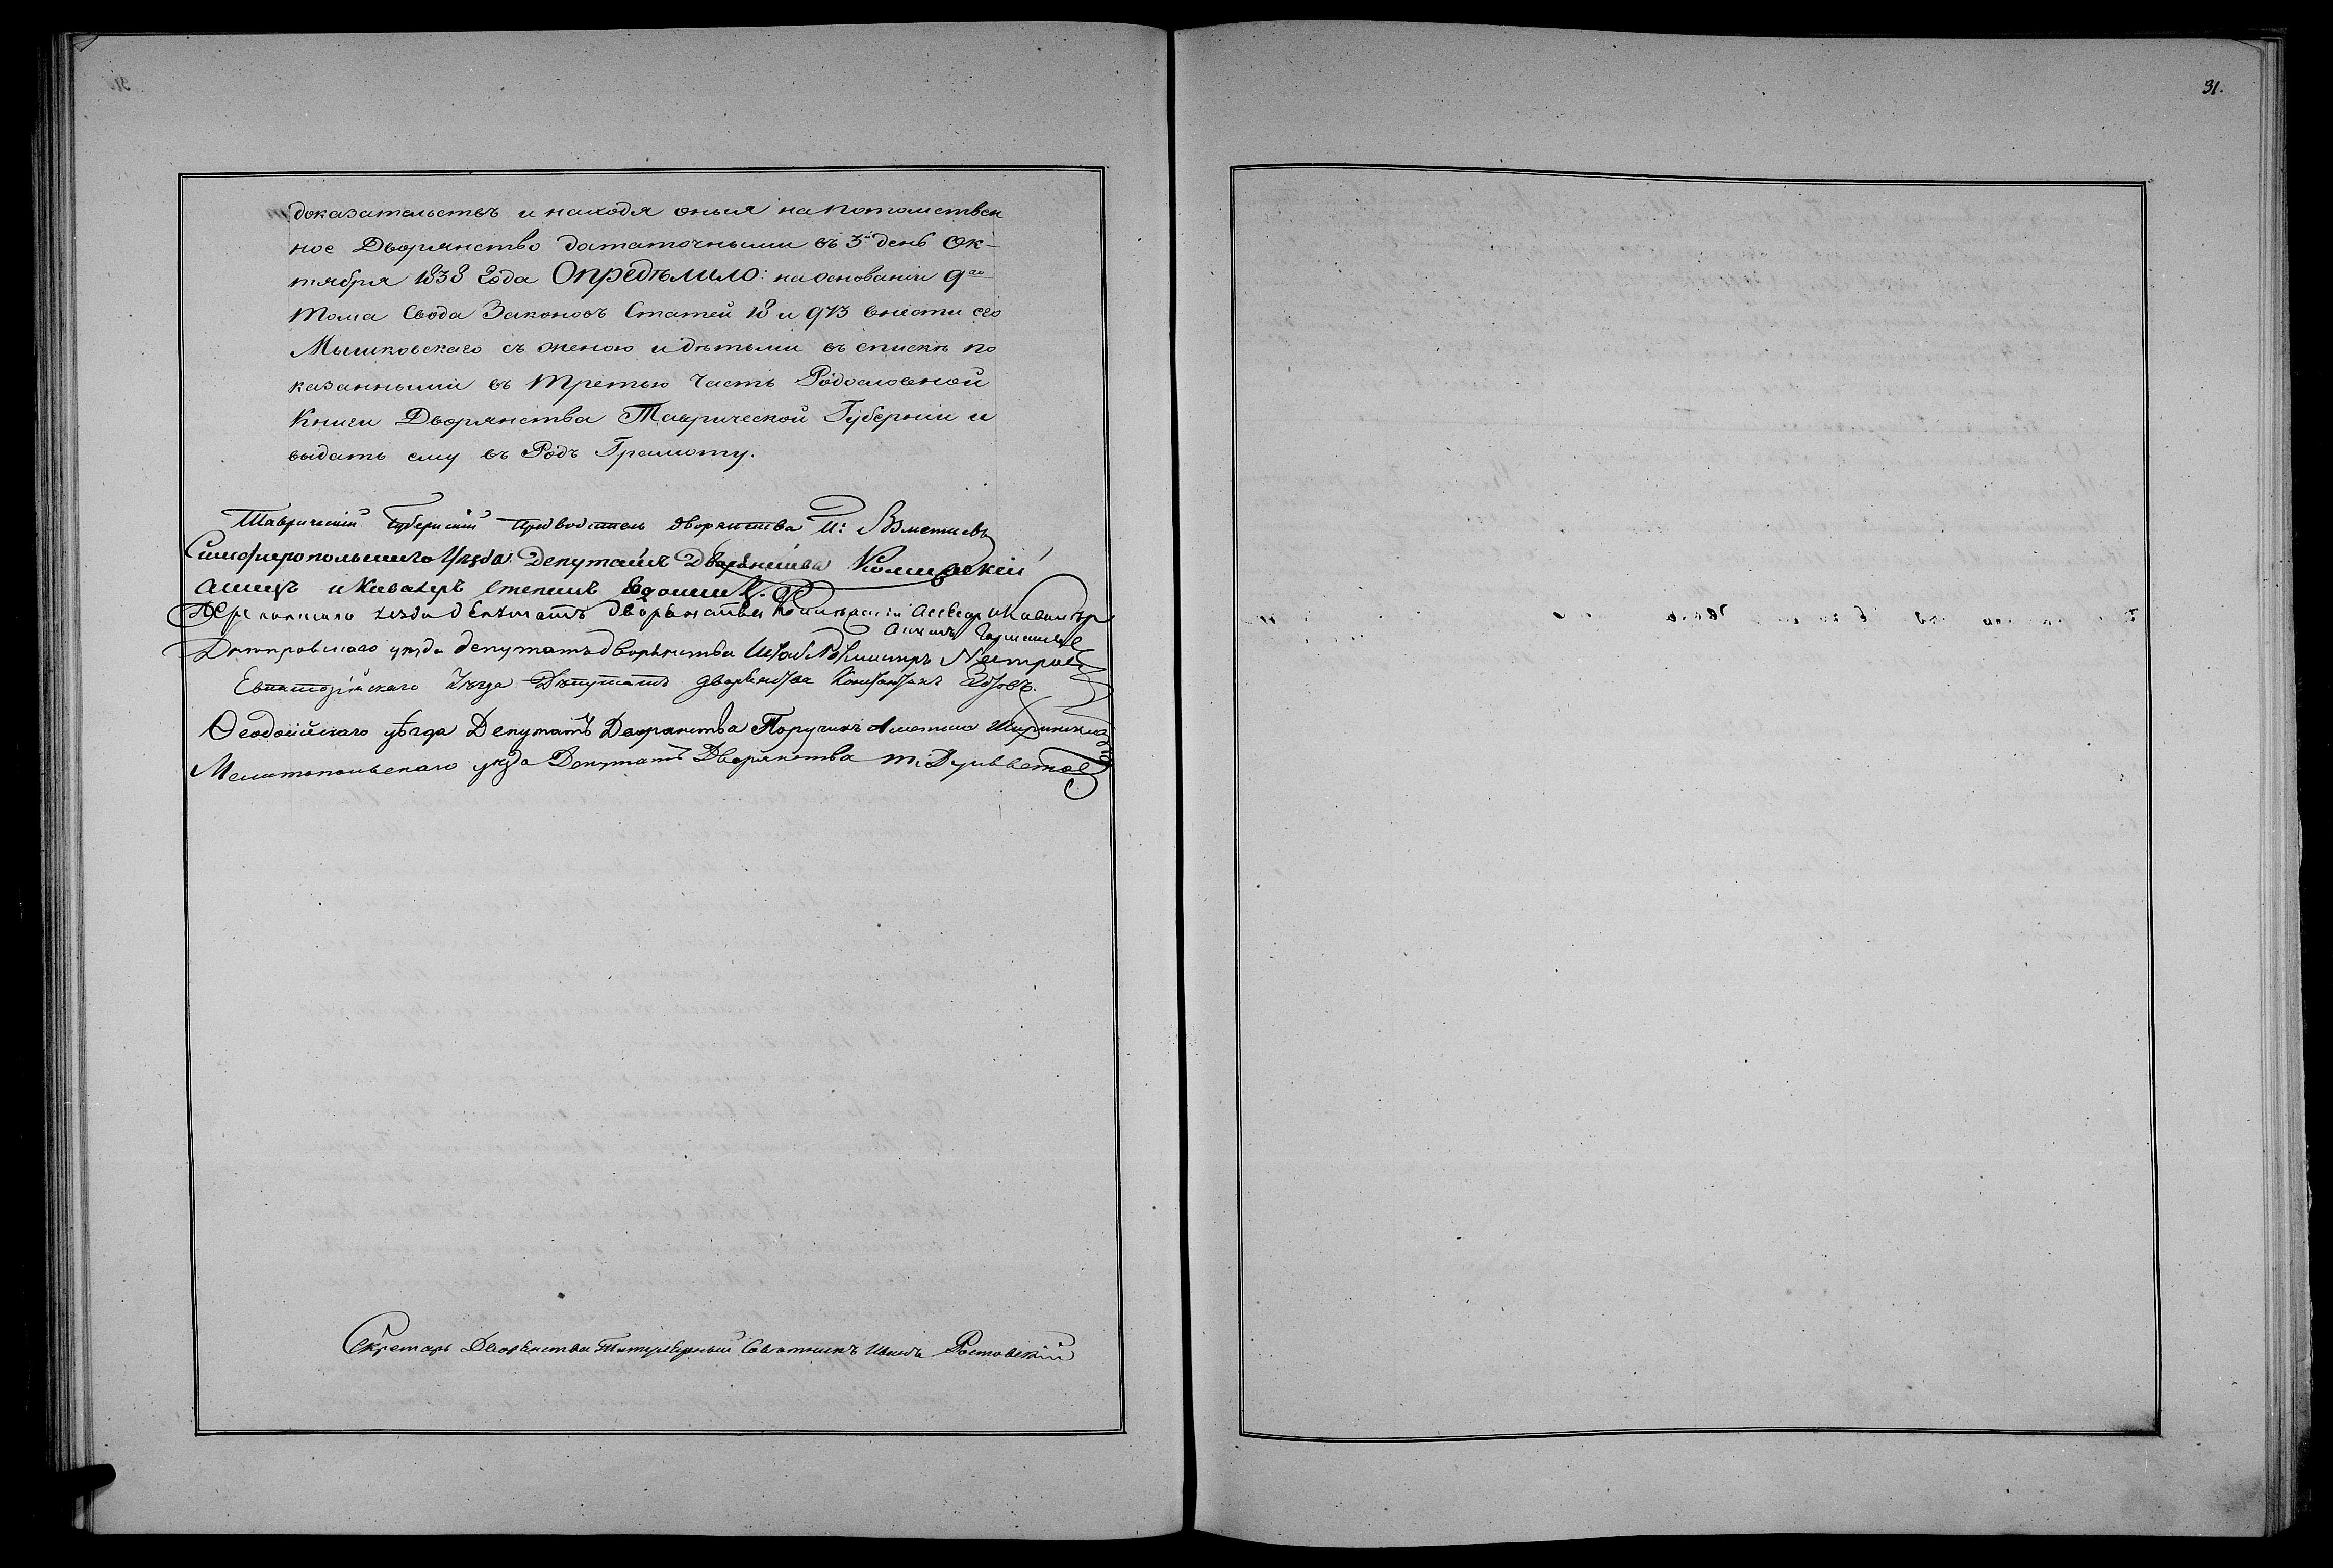 31.
доказательствъ и находя оныя на потомствен
ное Дворянство достаточными въ 3й день Ок-
тября 1838 Года Опредѣлило: на основаніи 9го
Тома Свода Законовъ Статей 18 и 973 внести его
Мышковскаго съ женою и дѣтьми въ спискѣ по
казанными въ Третью Часть Родословной
Книги Дворянства Таврической Губерніи и
выдать ему въ Родъ Грамоту.
Таврическій Губернскій Предводитель дворянства
Симферопольскаго Уѣзда Депутатъ Дворянства
и Кавалеръ
уѣзда депутатъ дворянства Ассесор и Кавалеръ
Днѣпровскаго уѣзда депутатъ дворянства
Евпаторійскаго Уѣзда Депутатъ дворянства
Ѳеодосійскаго уѣзда Депутатъ Дворянства Поручикъ
Мелитопольскаго уѣзда Депутатъ Дворянства
Секретарь Дворянства Титулярный Совѣтникъ Иванъ Ростовскій